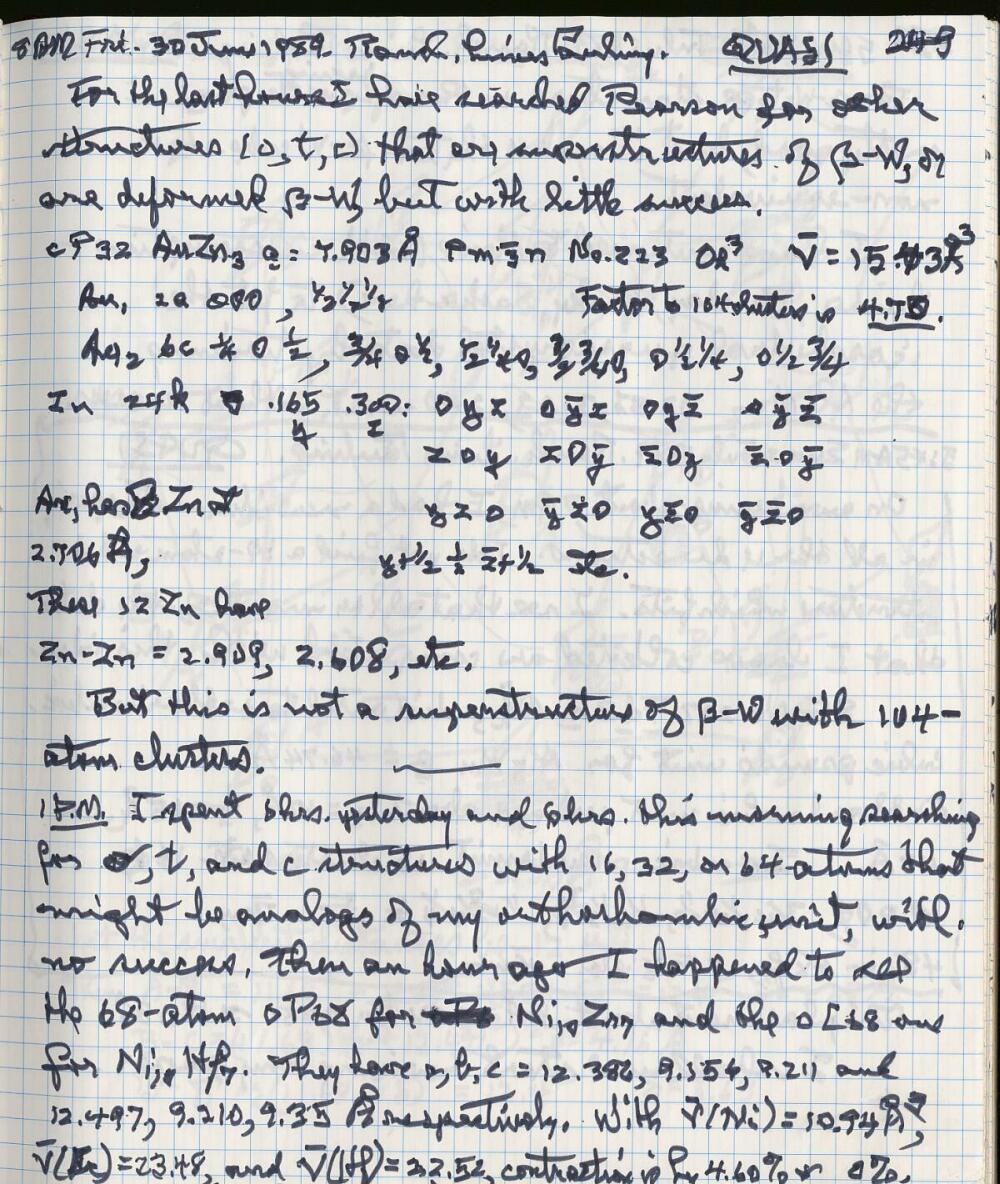 8 AM Fri. 30 June 1989. Ranch, Linus Pauling. QUASI
For the last hours I have searched Pearson for other
structures (o, t, c) that are superstructures of β-W, or
are deformed β-W, but with little success.
cP32 AuZn3 a = 7.903 Å Pm3̄n No. 223 Oh³ V̄ = 15.43 Å³
Au, 2a 000, ½ ½ ½ Factor to 104 clusters is
Au2 6c ¼ 0 ½, ¾ 0 ½, ½ ¼ 0, ½ ¾ 0, 0 ½ ¼, 0 ½ ¾
Zn 24k .165 .300: 0 y z 0 ȳ z 0 y z̄ 0 ȳ z̄
y z z 0 y z 0 ȳ z̄ 0 y z̄ 0 ȳ
Au, has 12 Zn at y z 0 ȳ z 0 y z̄ 0 ȳ z̄ 0
2.706 Å, y+½ ½ z̄+½ etc.
These 12 Zn have
Zn-Zn = 2.909, 2.608, etc.
But this is not a superstructure of β-W with 104-
atom clusters.
1 P.M. I spent 6 hrs. yesterday and 6 hrs. this morning searching
for o, t, and c structures with 16, 32, or 64-atoms that
might be analogs of my orthorhombic unit, with
no success. Then an hour ago I happened to see
the 68-atom oP68 for Ni10Zr7 and the oC68 one
for Ni10Hf7. They have a, b, c = 12.386, 9.156, 9.211 and
12.497, 9.210, 9.35 Å respectively. With V̄(Ni) = 10.94 Å³,
V̄(Zr) = 23.48, and V̄(Hf) = 22.52, contraction is by 4.60%